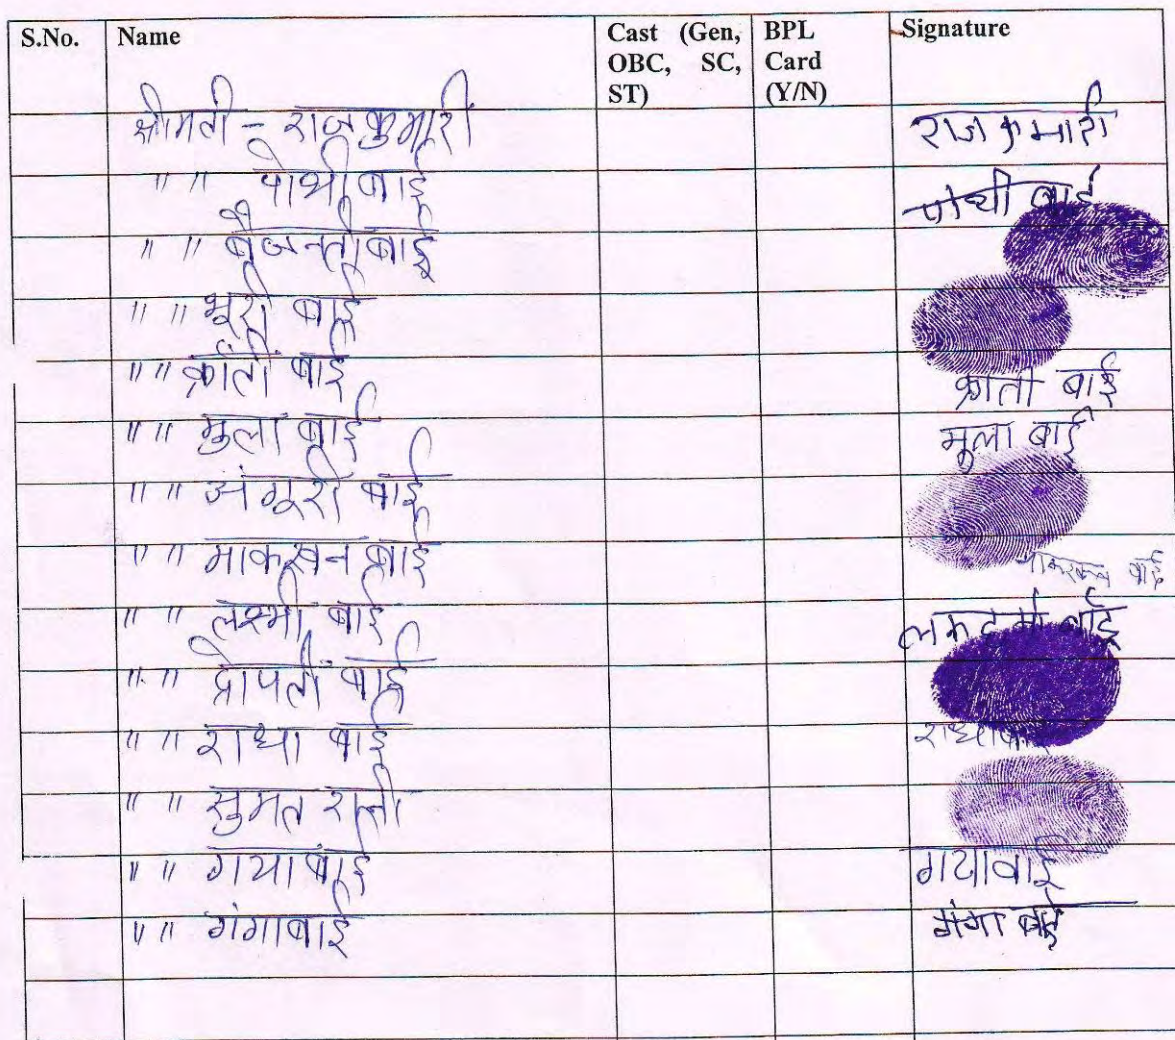 S.No. Name Cast (Gen, OBC, SC, ST) BPL Card (Y/N) Signature
श्रीमती - राजकुमारी राजकुमारी
" " पोथी बाई पोथी बाई
" " बैजन्ती बाई
" " भूरी बाई
" " क्रांती बाई क्राता बाई
" " मुला बाई मुला बाई
" " अंगूरी बाई
" " माकखन बाई बाई
" " लक्ष्मी बाई बाई
" " द्रोपती बाई
" " राधा बाई राधा बाई
" " सुमत रानी
" " गयाबाई गयाबाई
" " गंगाबाई गंगा बाई